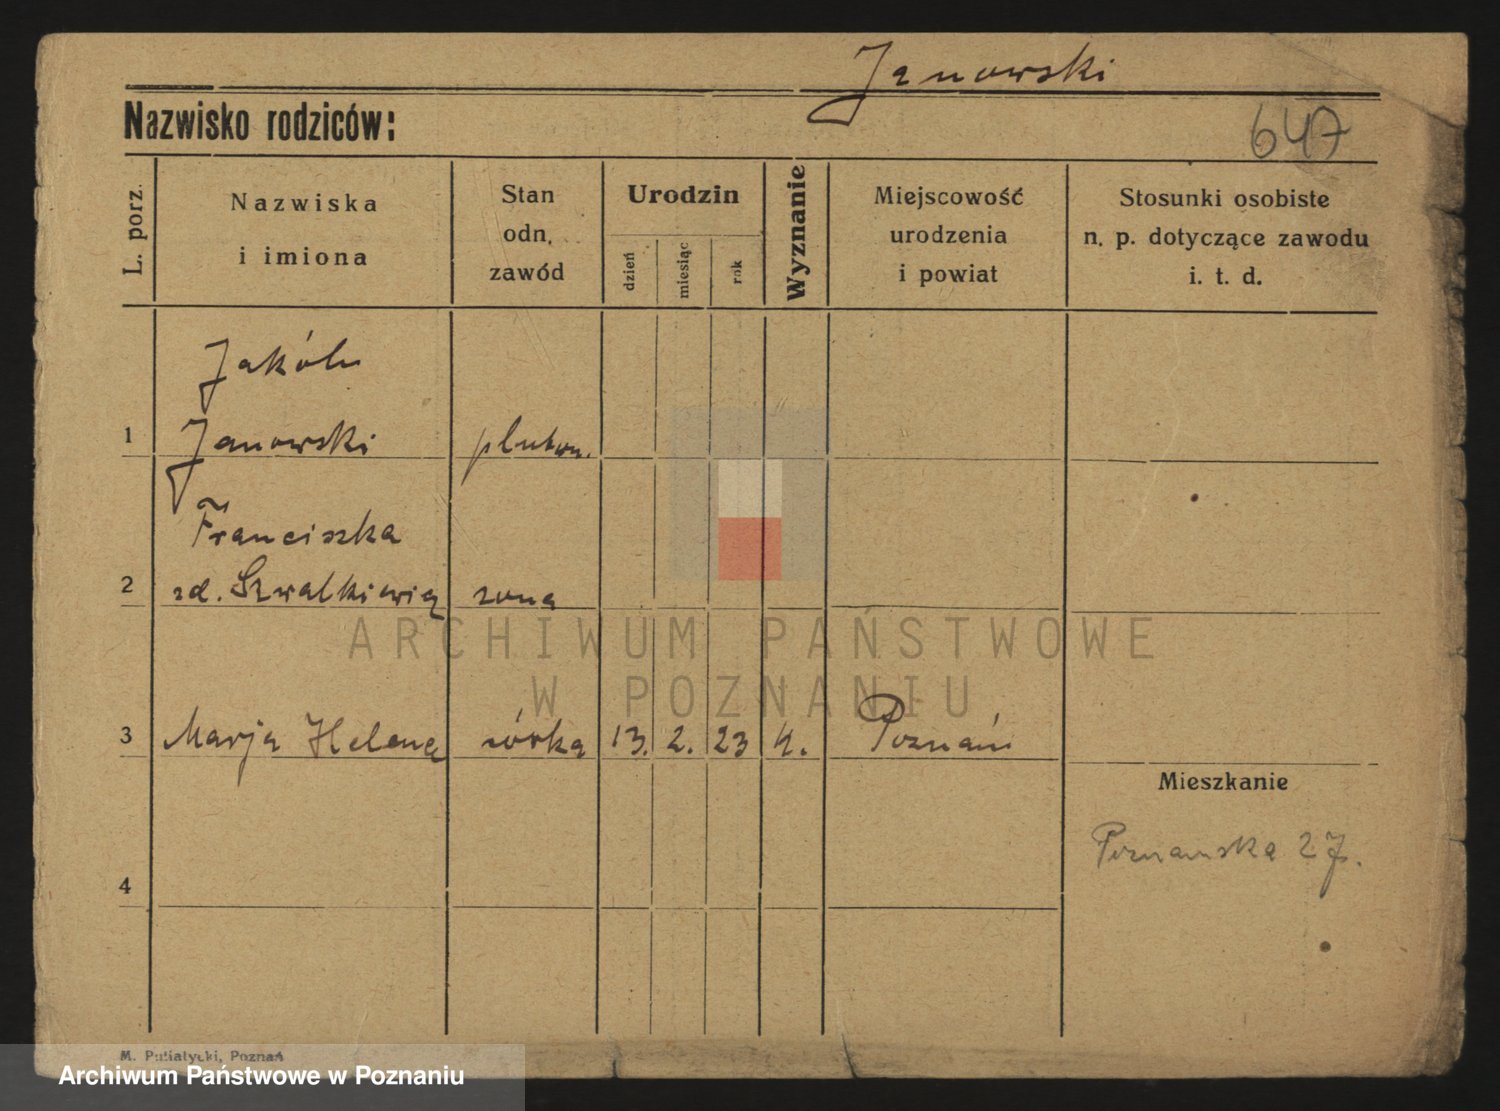 Janowski
Nazwisko rodziców:
647
L. porz.
Nazwiska
i imiona
Stan
odn.
zawód
Urodzin
dzień
miesiąc
rok
Wyznanie
Miejscowość
urodzenia
i powiat
Stosunki osobiste
n. p. dotyczące zawodu
i. t. d.
Jakób
1 Janowski pluton.
Franciszka
2 zd. Szwalkiewicz żona
ARCHIWUM PAŃSTWOWE
W POZNANIU
3 Marja Helena córka 13. 2. 23 k. Poznań
Mieszkanie
Poznanska 27.
4
M. Putiatycki, Poznań
Archiwum Państwowe w Poznaniu